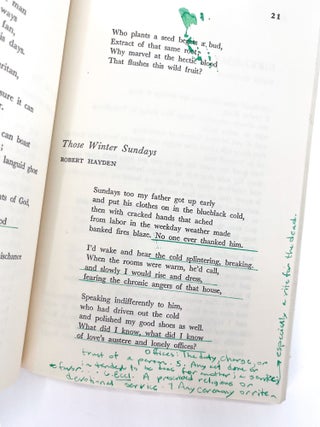 21
Who plants a seed begets a bud,
Extract of that same root;
Why marvel at the hectic blood
That flushes this wild fruit?
Those Winter Sundays
ROBERT HAYDEN
Sundays too my father got up early
and put his clothes on in the blueblack cold,
then with cracked hands that ached
from labor in the weekday weather made
banked fires blaze. No one ever thanked him.
I'd wake and hear the cold splintering, breaking.
When the rooms were warm, he'd call,
and slowly I would rise and dress,
fearing the chronic angers of that house,
Speaking indifferently to him,
who had driven out the cold
and polished my good shoes as well.
What did I know, what did I know
of love's austere and lonely offices?
Offices: The duty, charge, or
trust of a person. 3. Any act done or
intended to be done for another; a service;
favor. 6. Eccl. A prescribed religious or
devotional service. 7 Any ceremony or rite
especially a rite for the dead.
man
ways
fan,
is days.
ritan,
sure it can
can beast
languid ghost
nts of God,
od
mischance